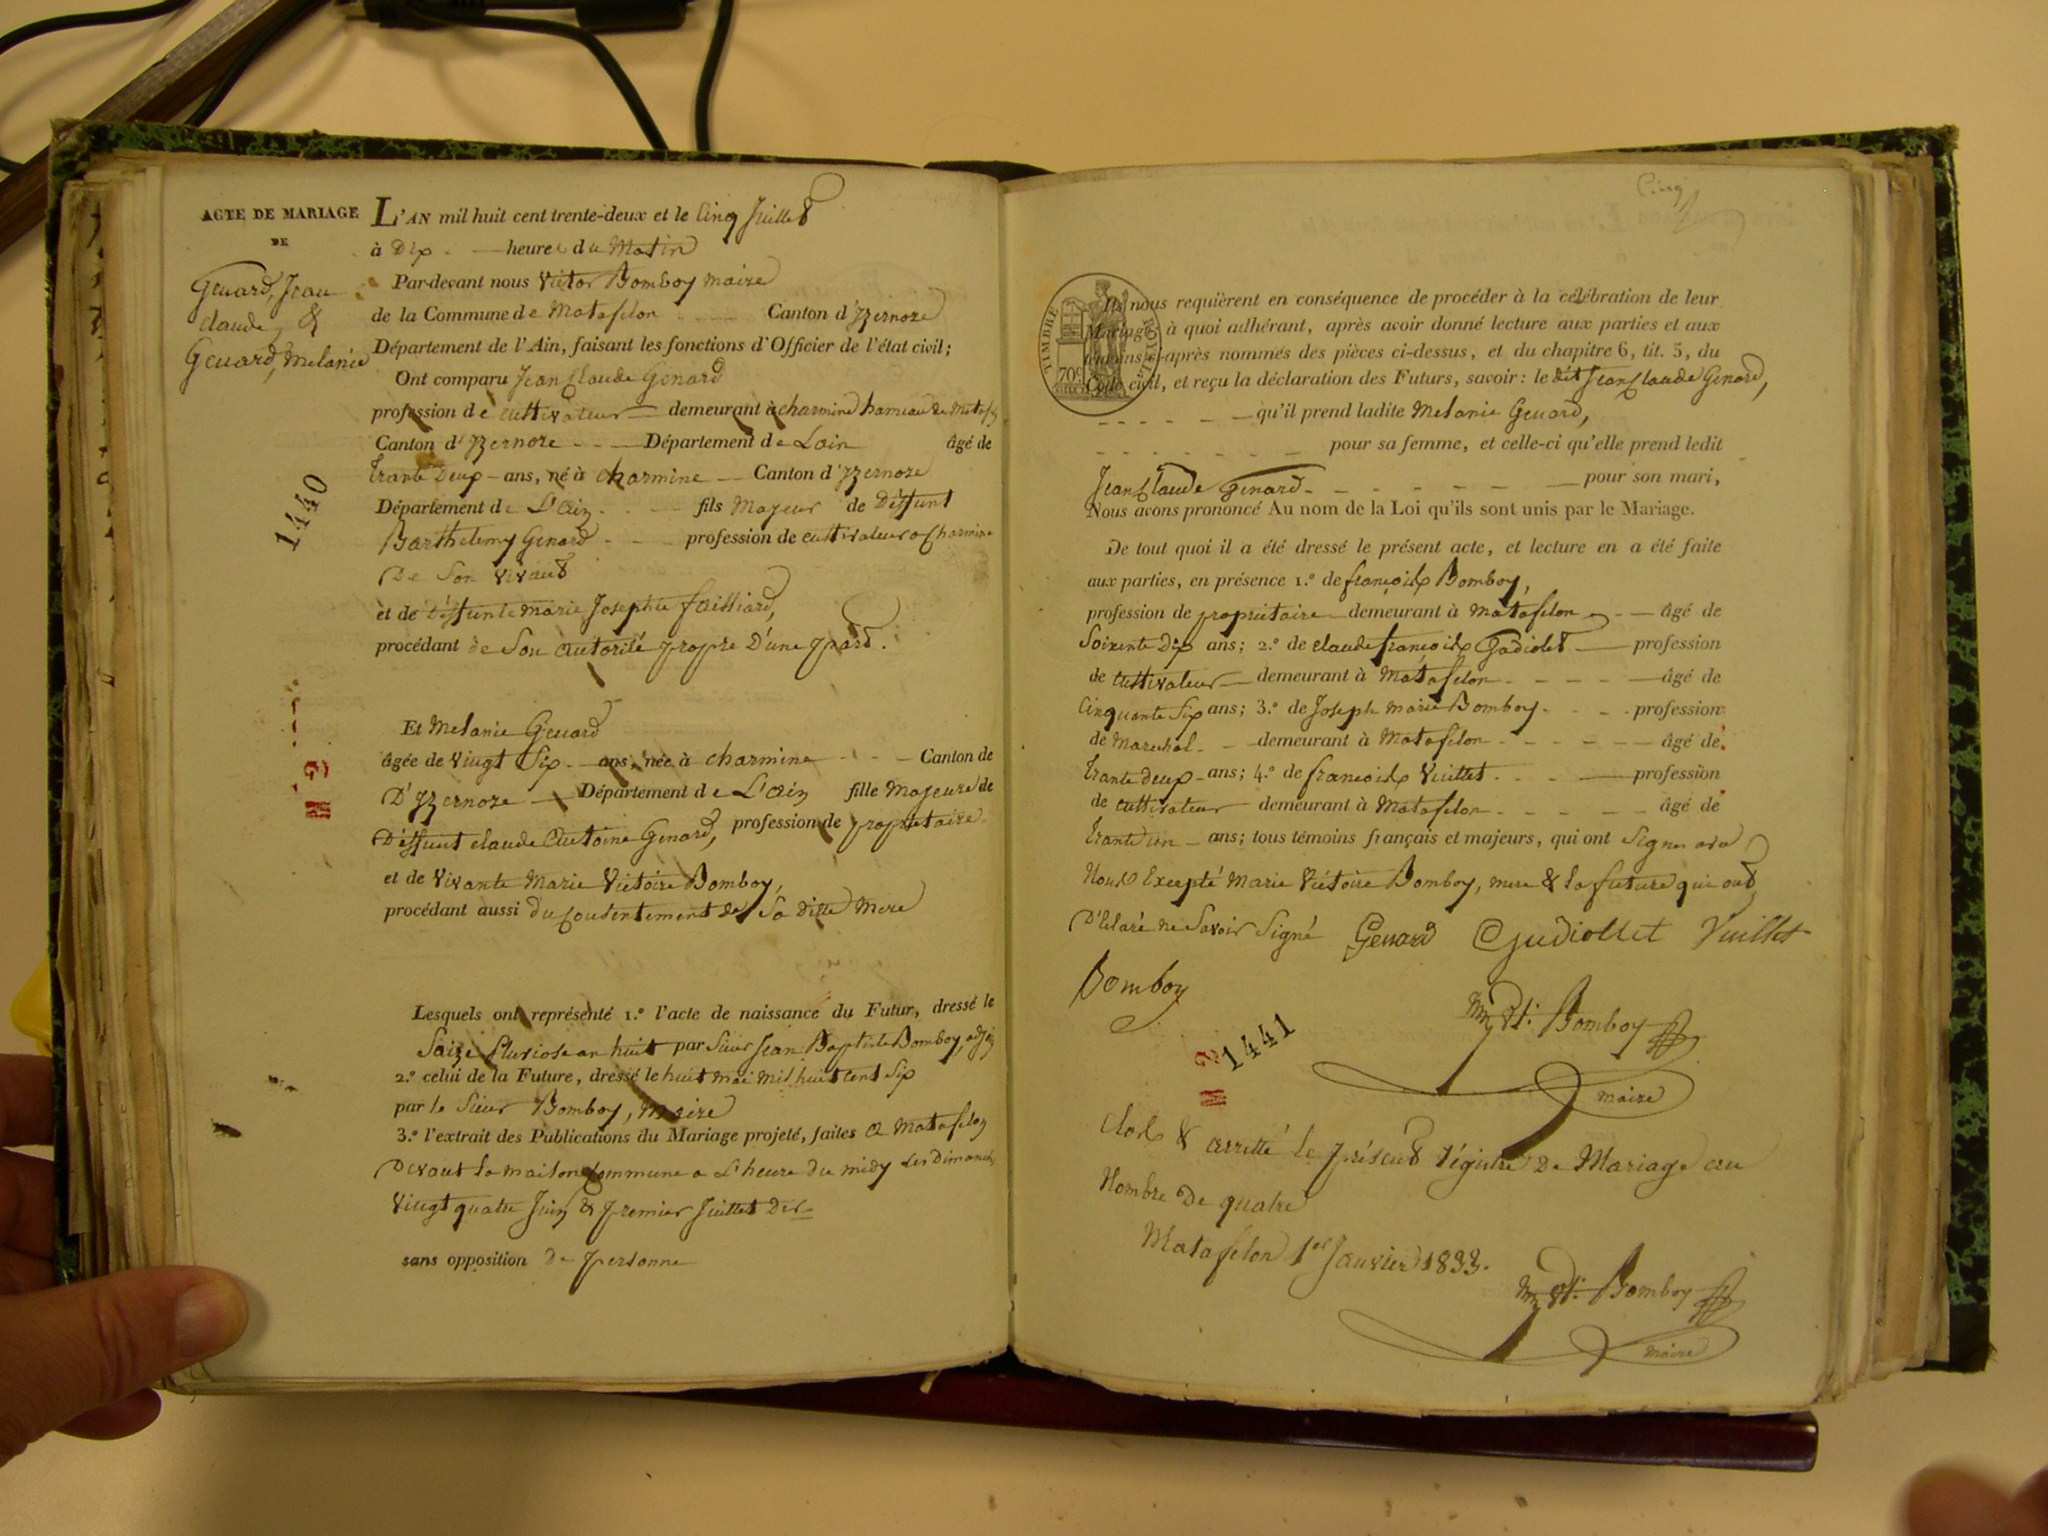 ACTE DE MARIAGE
DE
Genard, Jean
claude, &
Genard, Melanie
1440
M 2
L'AN mil huit cent trente-deux et le Cinq Juillet
à Dix heures du Matin
Par-devant nous Victor Bomboy maire
de la Commune de Matafelon Canton d'Izernore
Département de l'Ain, faisant les fonctions d'Officier de l'état civil;
Ont comparu Jean Claude Genard
profession de cultivateur demeurant à charmine hameau de
Canton d'Izernore Département de Lain âgé de
trante Deux ans, né à charmine Canton d'Izernore
Département de L'Ain fils Majeur de Déffunt
Barthelemy Genard profession de cultivateur a Charmine
De Son vivant
et de déffunte marie Josephte failliard,
procédant de Son autorité propre D'une part.
Et Melanie Genard
âgée de Vingt Six ans, née à charmine Canton de
D'Izernore Département de L'Ain fille Majeure de
Déffunt claude Antoine Genard, profession de propriétaire
et de Vivante Marie Victoire Bomboy,
procédant aussi du Consentement de Sa ditte Mere
Lesquels ont représenté 1.º l'acte de naissance du Futur, dressé le
Saize Pluviose an huit par Sieur Jean Baptiste Bomboy,
2.º celui de la Future, dressé le huit mai mil huit cent Six
par le Sieur Bomboy, Maire
3.º l'extrait des Publications du Mariage projeté, faites a Matafelon
Devant la maison Commune a L'heure du midy les Dimanches
Vingt quatre Juin & premier Juillet Der
sans opposition de personne
Cinq
TIMBRE ROYAL
70c
Ils nous requièrent en conséquence de procéder à la célébration de leur
Mariage à quoi adhérant, après avoir donné lecture aux parties et aux
témoins ci-après nommés des pièces ci-dessus, et du chapitre 6, tit. 5, du
Code civil, et reçu la déclaration des Futurs, savoir: le dit Jean Claude Genard,
qu'il prend ladite Melanie Genard,
pour sa femme, et celle-ci qu'elle prend ledit
Jean Claude Genard pour son mari,
Nous avons prononcé Au nom de la Loi qu'ils sont unis par le Mariage.
De tout quoi il a été dressé le présent acte, et lecture en a été faite
aux parties, en présence 1.º de françois Bomboy,
profession de propriétaire demeurant à Matafelon âgé de
Soixente Dix ans; 2.º de claude françois Gadiolet profession
de cultivateur demeurant à Matafelon âgé de
Cinquante Six ans; 3.º de Joseph Marie Bomboy profession
de Marechal demeurant à Matafelon âgé de
trante deux ans; 4.º de françois Vuillet profession
de cultivateur demeurant à Matafelon âgé de
trante un ans; tous témoins français et majeurs, qui ont Signer avec
Nous Excepté Marie Victoire Bomboy, mere & la future qui ont
Déclaré ne Savoir Signé Genard Gudiollet Vuillet
Bomboy
Bomboy
maire
M 2
1441
Clos & arretté le présent régistre De Mariage au
Nombre De quatre
Matafelon 1er Janvier 1833.
Bomboy
maire